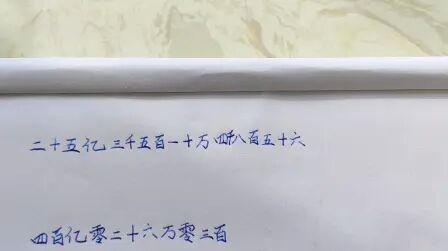 二十五亿三千五百一十万四千八百五十六
四百亿零二十六万零三百